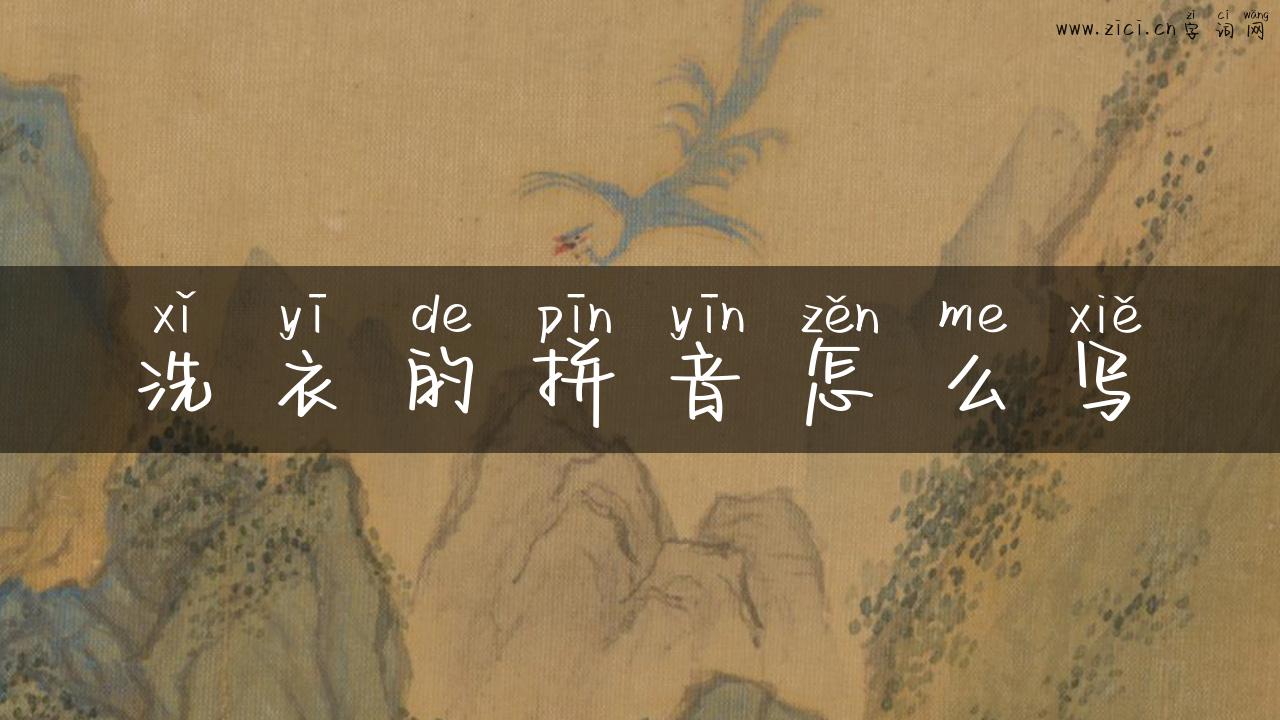 zì cí wǎng
www.zici.cn字词网
xǐ yī de pīn yīn zěn me xiě
洗衣的拼音怎么写